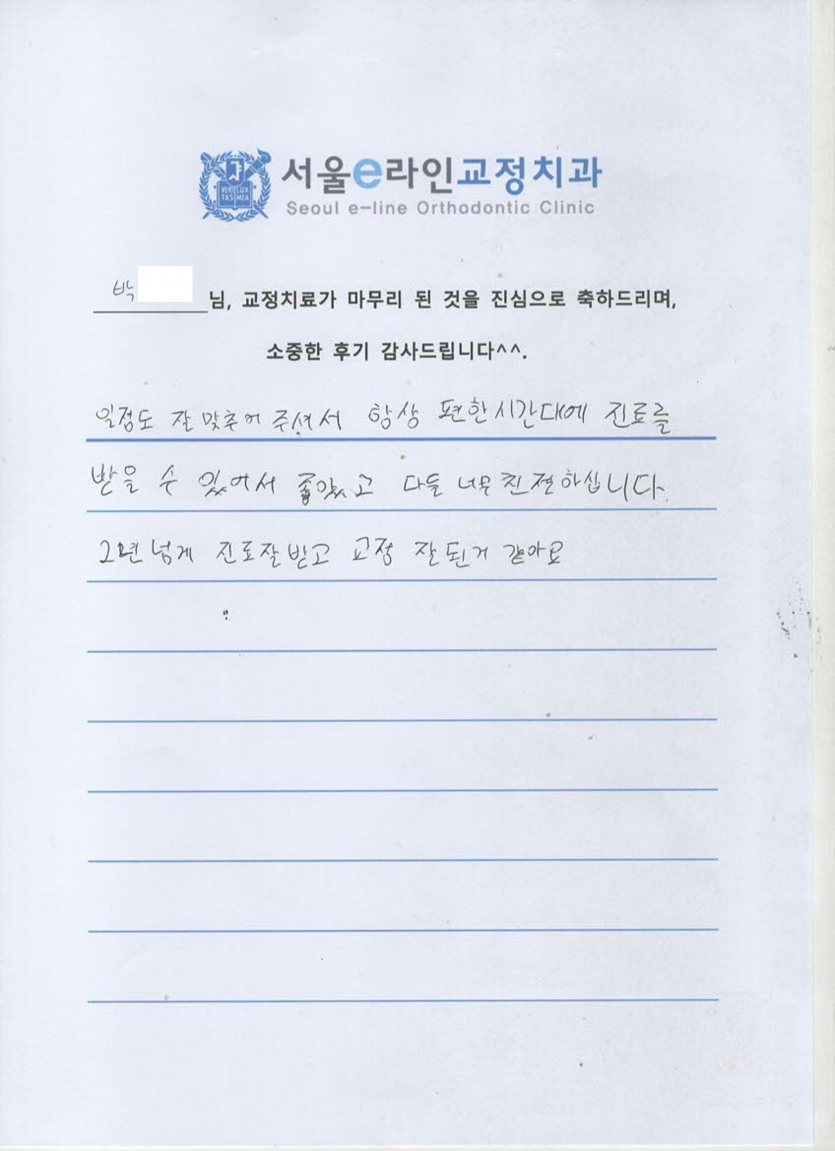 VERI LUX
TAS MEA
서울e라인교정치과
Seoul e-line Orthodontic Clinic
박 님, 교정치료가 마무리 된 것을 진심으로 축하드리며,
소중한 후기 감사드립니다^^.
일정도 잘 맞추어 주셔서 항상 편한시간대에 진료를
받을 수 있어서 좋았고 다들 너무 친절하십니다.
2년 넘게 진료잘받고 교정 잘된거 같아요